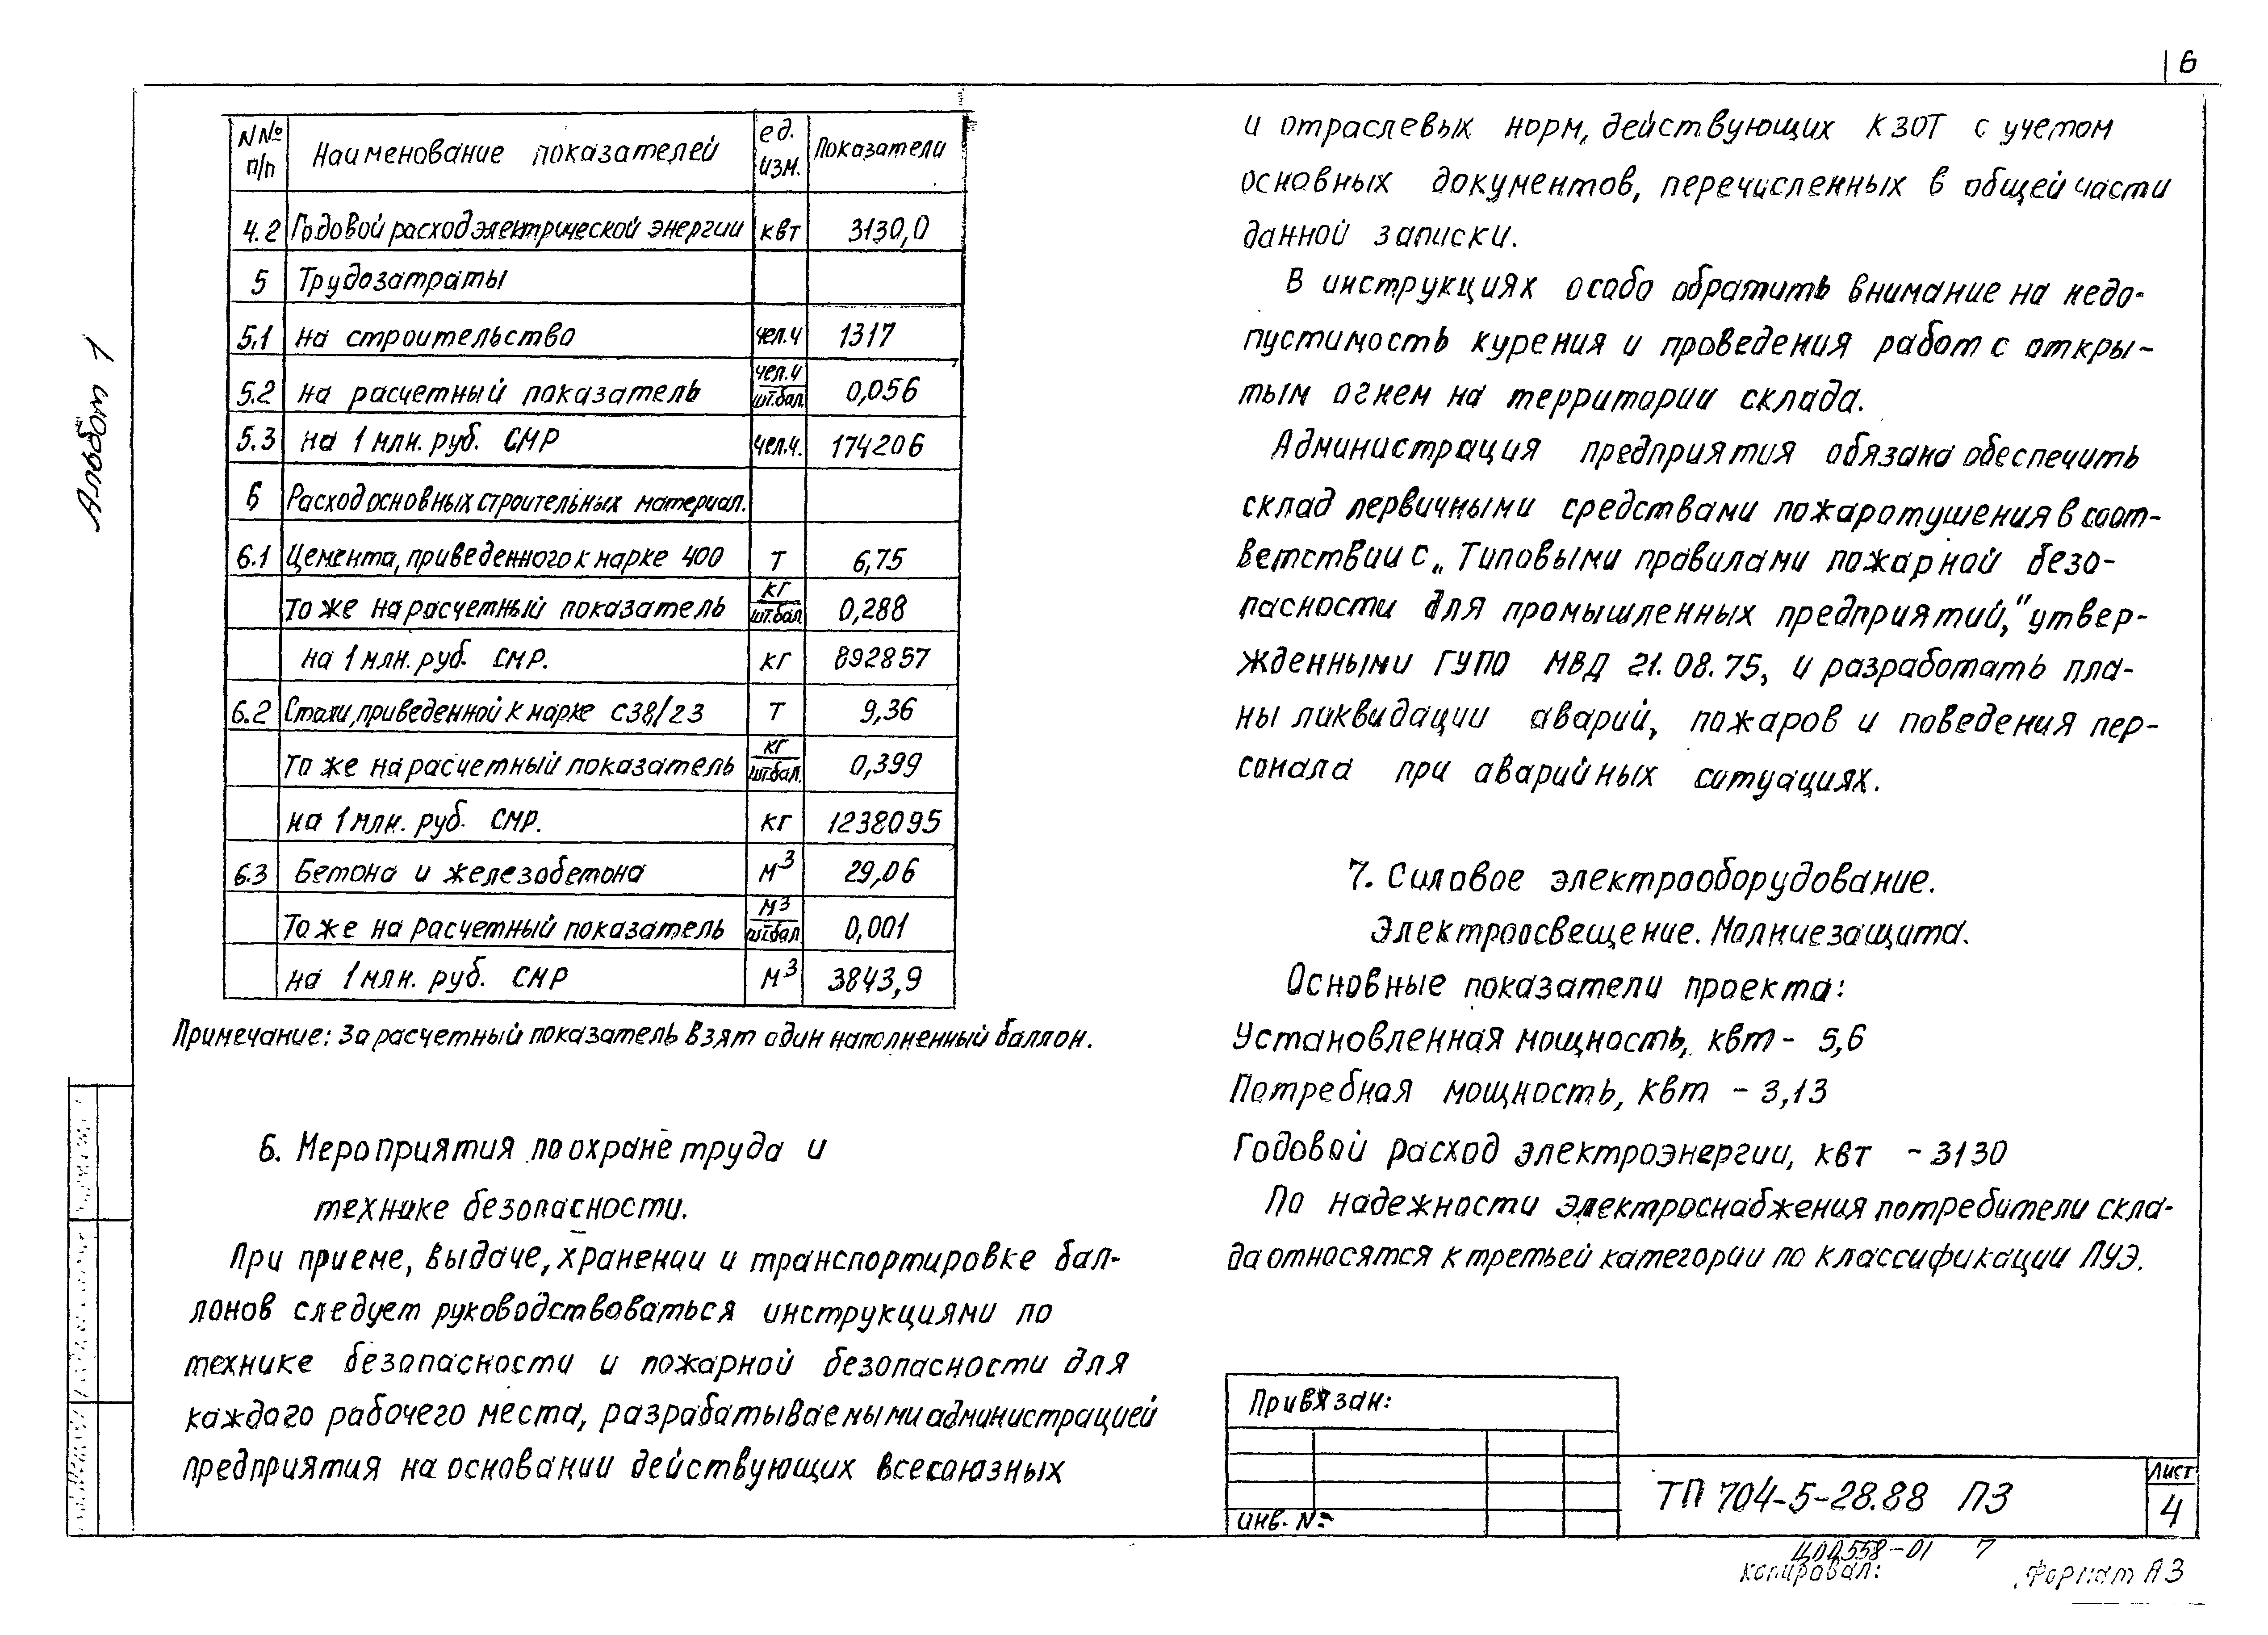 6
Альбом 1
N№ п/п Наименование показателей ед. изм. Показатели
4.2 Годовой расход электрической энергии квт 3130,0
5 Трудозатраты
5.1 на строительство чел.ч 1317
5.2 на расчетный показатель чел.ч/шт.бал. 0,056
5.3 на 1 млн. руб. СМР чел.ч. 174206
6 Расход основных строительных материал.
6.1 Цемента, приведенного к марке 400 т 6,75
То же на расчетный показатель кг/шт.бал. 0,288
на 1 млн. руб. СМР. кг 892857
6.2 Стали, приведенной к марке С38/23 т 9,36
То же на расчетный показатель кг/шт.бал. 0,399
на 1 млн. руб. СМР. кг 1238095
6.3 Бетона и железобетона м3 29,06
То же на расчетный показатель м3/шт.бал. 0,001
на 1 млн. руб. СМР м3 3843,9
Примечание: За расчетный показатель взят один наполненный баллон.
6. Мероприятия по охране труда и
технике безопасности.
При приеме, выдаче, хранении и транспортировке бал-
лонов следует руководствоваться инструкциями по
технике безопасности и пожарной безопасности для
каждого рабочего места, разрабатываемыми администрацией
предприятия на основании действующих всесоюзных
и отраслевых норм, действующих КЗОТ с учетом
основных документов, перечисленных в общей части
данной записки.
В инструкциях особо обратить внимание на недо-
пустимость курения и проведения работ с откры-
тым огнем на территории склада.
Администрация предприятия обязана обеспечить
склад первичными средствами пожаротушения в соот-
ветствии с „Типовыми правилами пожарной безо-
пасности для промышленных предприятий," утвер-
жденными ГУПО МВД 21.08.75, и разработать пла-
ны ликвидации аварий, пожаров и поведения пер-
сонала при аварийных ситуациях.
7. Силовое электрооборудование.
Электроосвещение. Молниезащита.
Основные показатели проекта:
Установленная мощность, квт - 5,6
Потребная мощность, квт - 3,13
Годовой расход электроэнергии, квт - 3130
По надежности электроснабжения потребители скла-
да относятся к третьей категории по классификации ПУЭ.
Привязан:
инв. №
ТП 704-5-28.88 ПЗ
Лист
4
Ц00558-01 7
Копировал: Формат А3